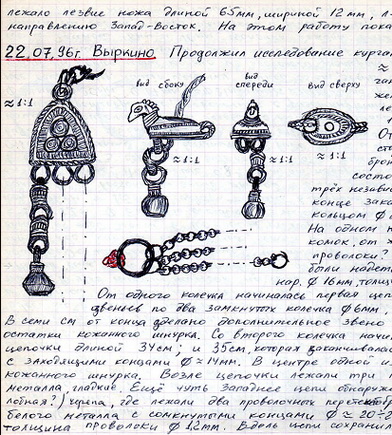 лежало лезвие ножа длиной 65мм, шириной 12мм,
направлению Запад-Восток. На этом работу
22.07.96г. Выркино. Продолжил исследование
≈1:1
вид сбоку
вид спереди
вид сверху
≈1:1
≈1:1
≈1:1
состо
трёх незави
конце зака
кольцом ф
На одном к
комок, от
проволоки?
были надет
нар. ф 16мм, толщи
От одного колечка начиналась первая цеп
звеньев по два замкнутых колечка ф6мм.
В семи см от конца сделано дополнительное звено
остатки кожанного шнурка. Со второго колечка начи
цепочки длиной 34см; и 35см, которая заканчивалась
с заходящими концами ф≈14мм. В центре одной и
кожанного шнурка. Возле цепочки лежали три
металла, гладкие. Ещё чуть западнее цепи обнаруж
лобная?) черепа, где лежали два проволочных
белого металла с сомкнутыми концами ф≈20÷2
толщина проволоки ф 1,2мм. Вдель цепи сохрани